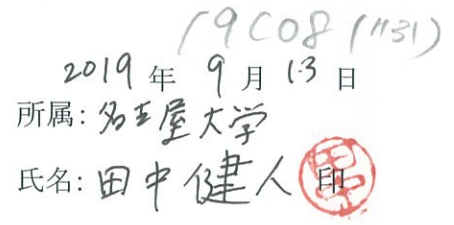 19C08(1131)
2019 年 9 月 13 日
所属: 名古屋大学
氏名: 田中健人 印